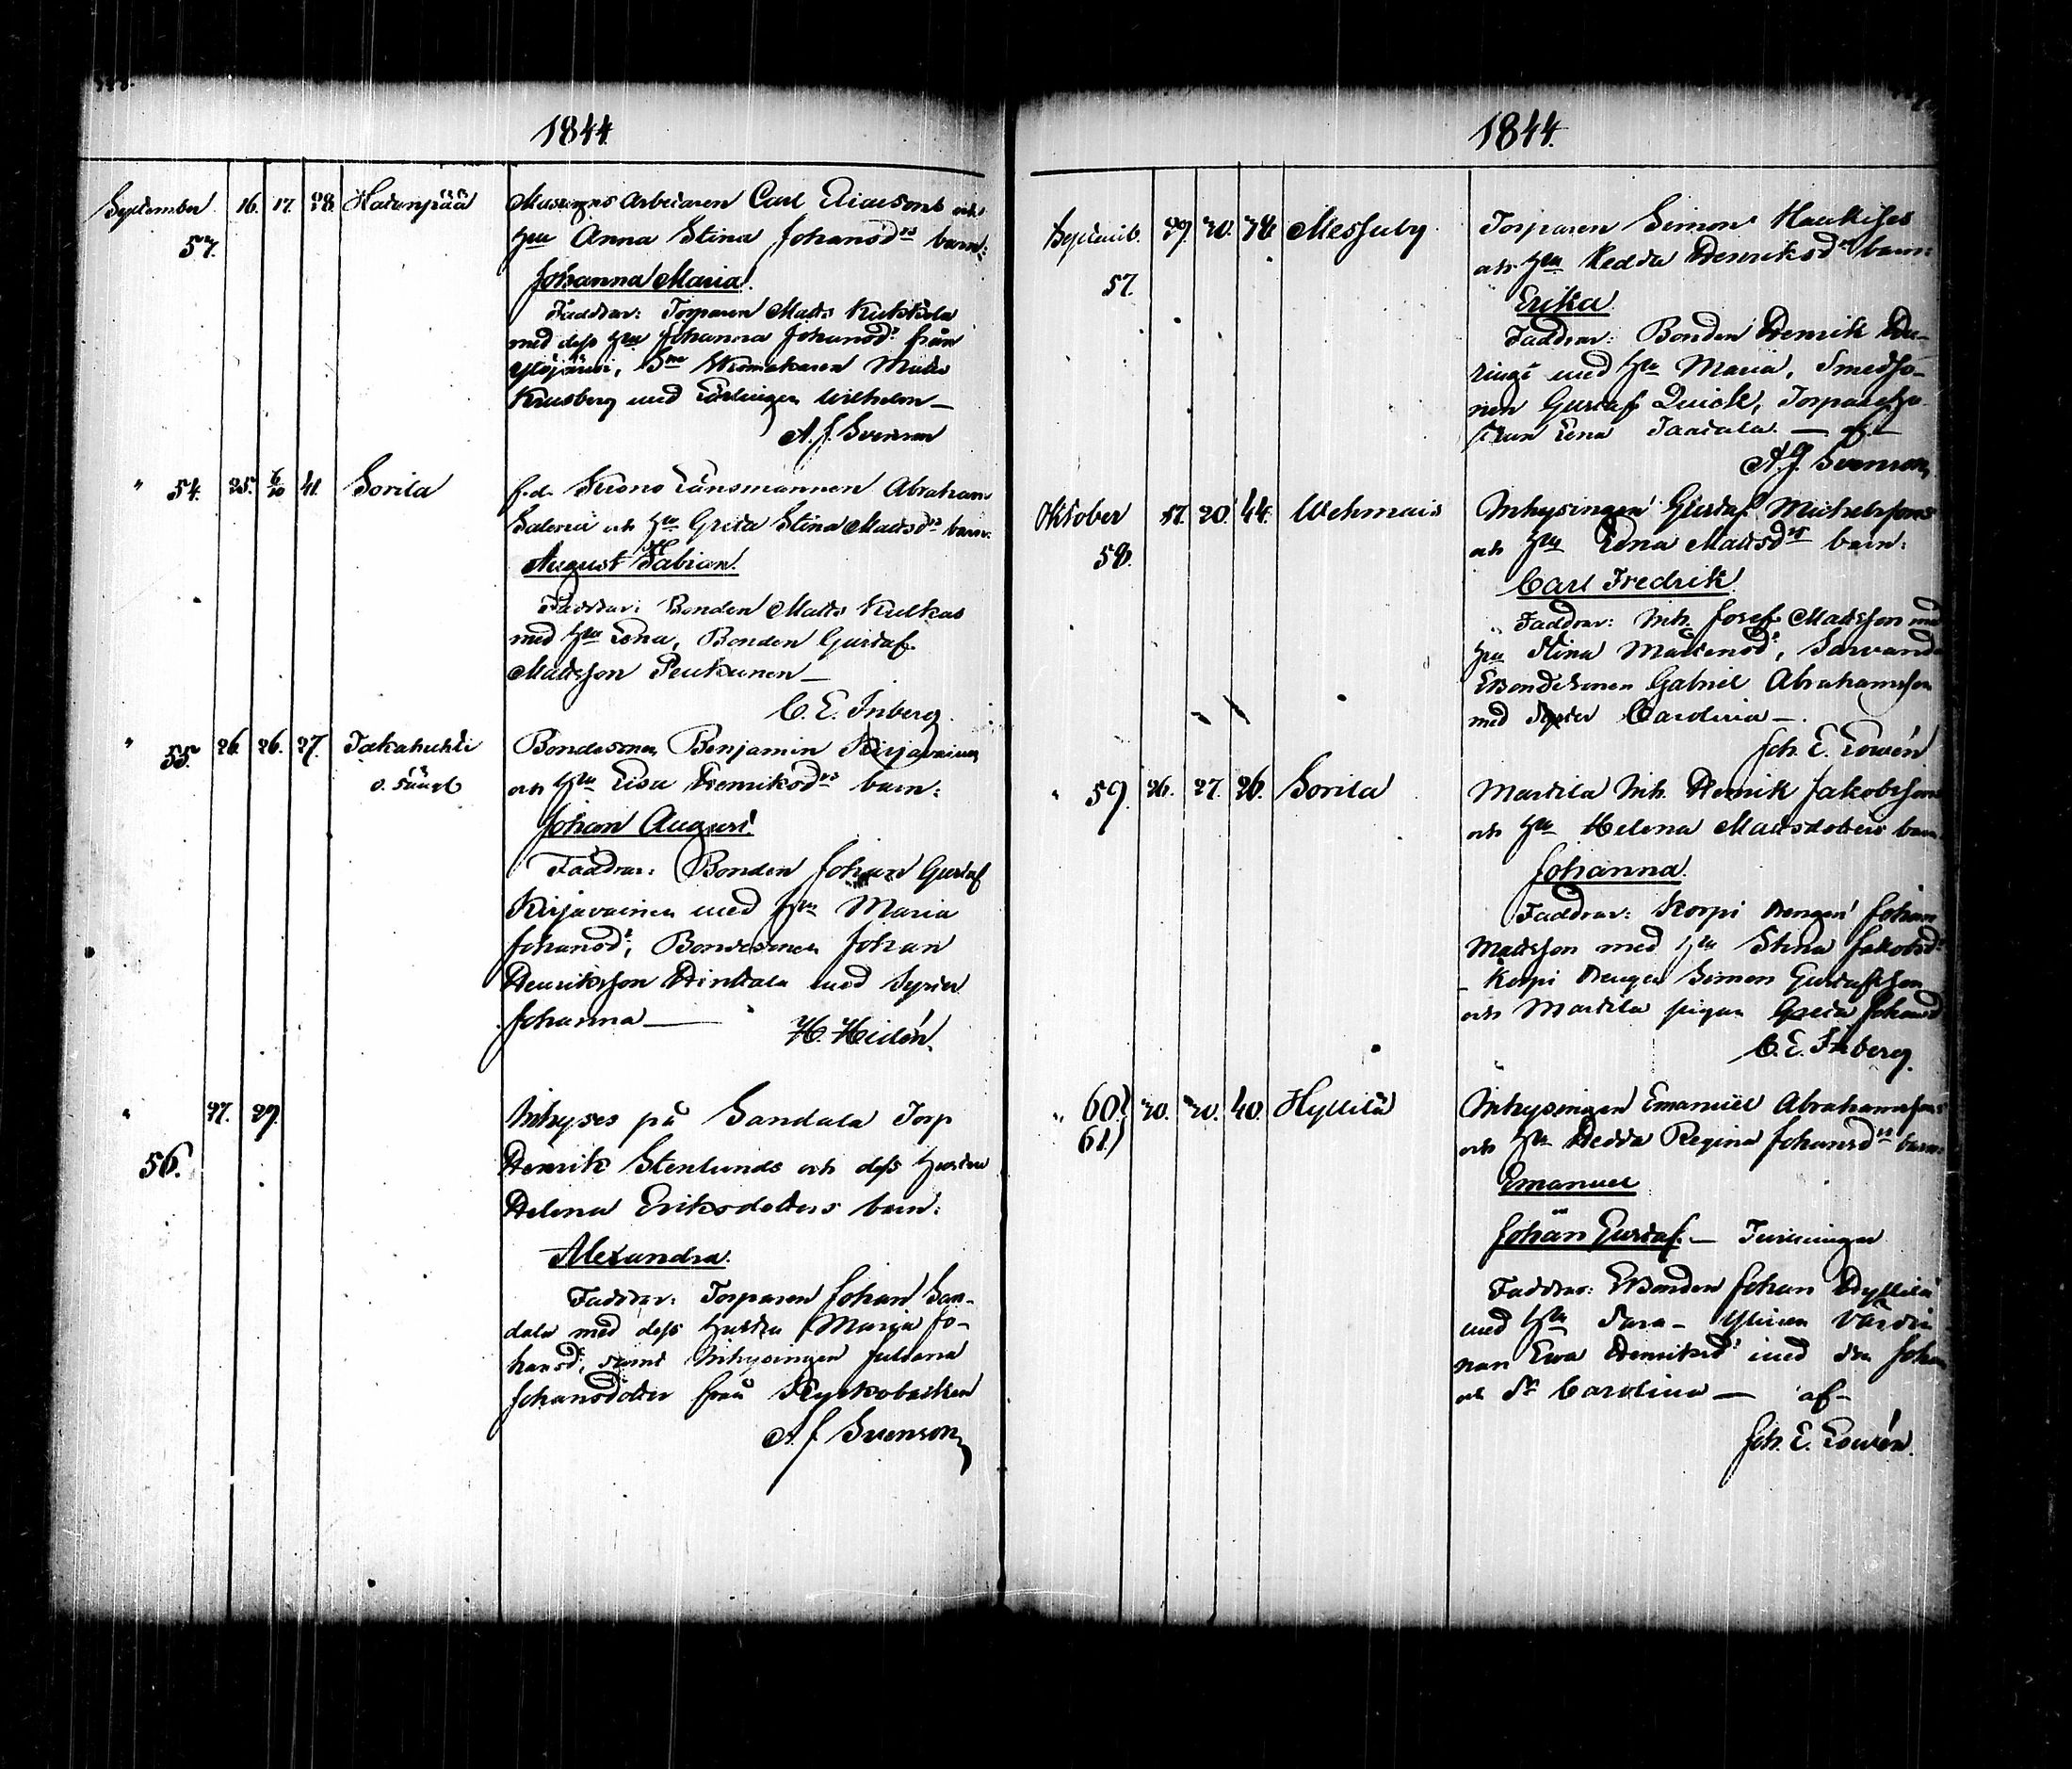 1844
September 16. 17. 28. Hatanpää Masugns Arbetaren Carl Eliaesons och
57. hu Anna Stina Johansdrs barn:
Johanna Maria.
Faddrar: Torparen Matts
med dess hu Johanna Johansdr från
Ylöjärvi, Matts
Krusberg med Wilhelm—
A. J. Svenson
" 54. 25. 6/10 41. Sorila f.d. Krono Länsmannen Abraham
och hu Greta Stina Mattsdrs barn:
August Fabian.
Faddrar: Bonden Matts Kulkas
med hu Lena, Bonden Gustaf
Mattsson Penkunen—
C. E. Inberg.
" 55. 26. 26. 27. Takahuhti Bondesonen Benjamin Kirjavainen
och hu Lisa Henriksdrs barn:
Johan August.
Faddrar: Bonden Johan Gustaf
Kirjavainen med hu Maria
Johansdr, Bondesonen Johan
Henriksson med Syster
Johanna—
H. Heidén.
" 27. 29. Inhyses på Sandala Torp
56. Henrik Stenlunds och dess hustru
Helena Eriksdotters barn:
Alexandra.
Faddrar: Torparen Johan San-
dala med dess hustru Maria Jo-
hansd, samt Inhysingen Juliana
Johansdotter från Kyrkobacken
A. J. Svenson
1844.
Septemb. 29. 30. Messuby Torparen Simon
57. och hu Hedda Henriksdrs barn:
Erika
Faddrar: Bonden Henrik
med hu Maria, Smedso-
nen Gustaf Quick,
Lena
A. J. Svenson
Oktober 17. 20. 44. Wehmais Inhysingen Gustaf Michelssons
58. och hu Lena Mattsdrs barn:
Carl Fredrik
Faddrar: Inh. Josef Mattsson med
hu Stina
Bondesonen Gabriel Abrahamsson
med Syster Carolina—.
Joh. E. Lowén.
" 59. 26. 27. 26. Sorila Martila Inh. Henrik Jakobssons
och hu Helena Mattsdotters barn
Johanna.
Faddrar: Korpi drengen Johan
Mattsson med hu Stina Jakobsdr
Korpi drengen Simon Gustafsson
och Martila pigan Greta Johansd
C. E. Inberg.
" 60.) 30. 30. 40. Hyllilä Inhysingen Emanuel Abrahamssons
61.) och hu Hedda Regina Johansdrs barn:
Emanuel
Johan Gustaf.— Tvillingar
Faddrar: Bonden Johan Hyllilä
med hu Sara— Ylinen Värdin
nan Ewa Henriksdr med Johan
och Carolina— af—
Joh. E. Lowén.